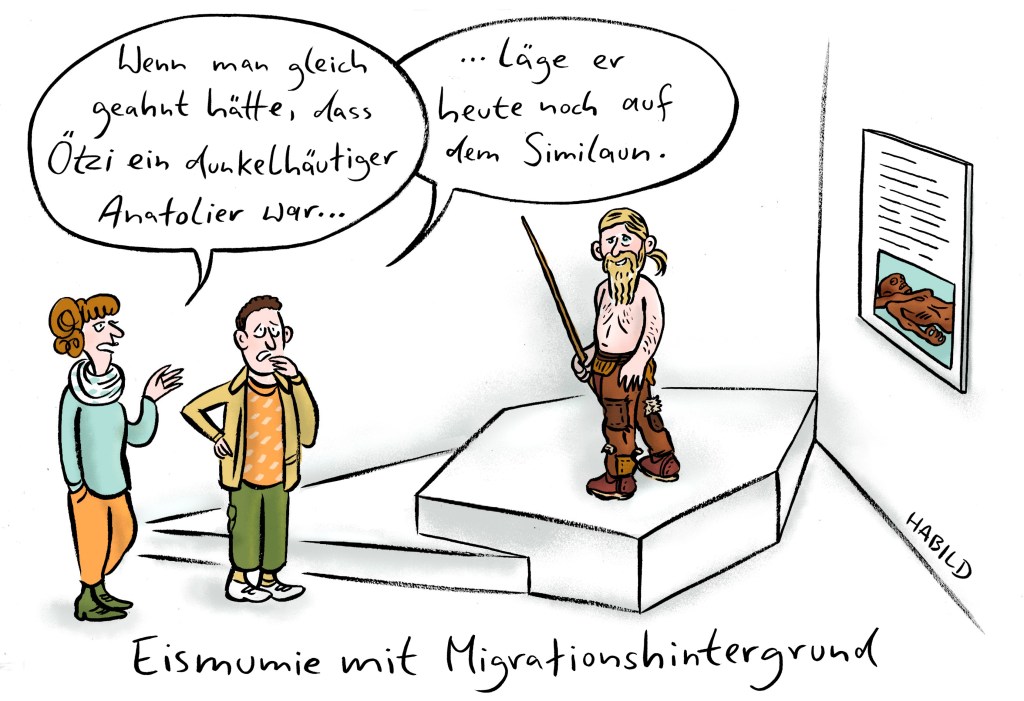 Wenn man gleich
geahnt hätte, dass
Ötzi ein dunkelhäutiger
Anatolier war...
... Läge er
heute noch auf
dem Similaun.
HABILD
Eismumie mit Migrationshintergrund